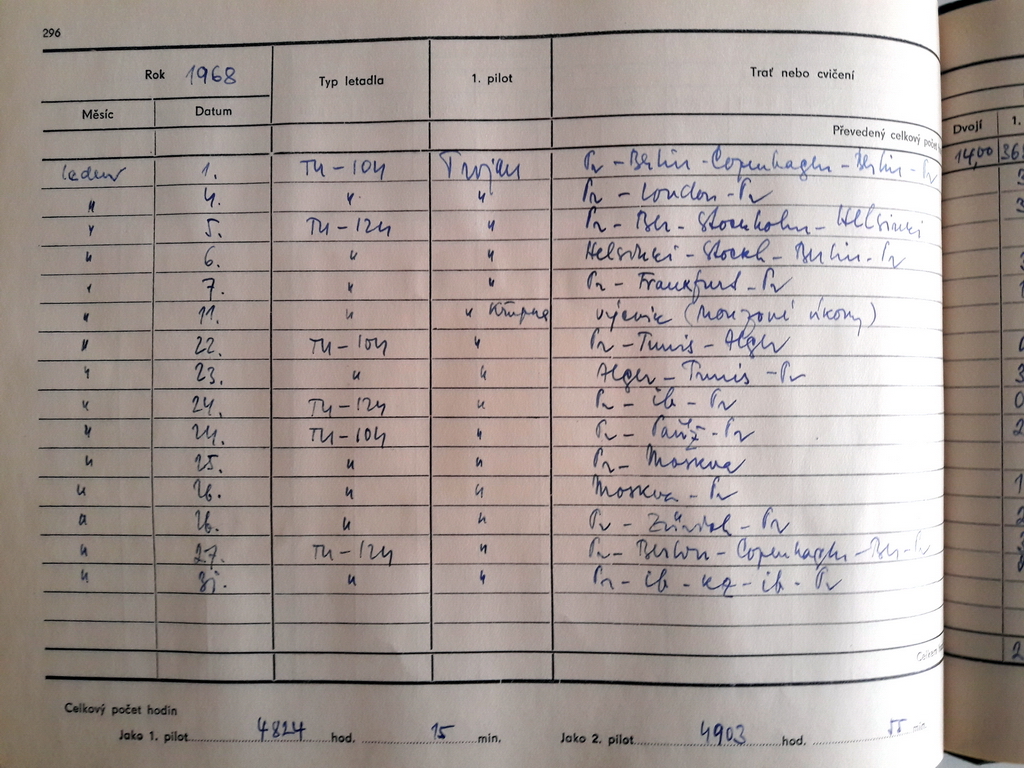 296
Rok 1968 Typ letadla 1. pilot Trať nebo cvičení
Měsíc Datum Dvojí 1.
Převedený celkový počet
leden 1. TU-104 Trojan Pr - Berlin - Copenhagen - Berlin - Pr 1400
" 4. " " Pr - London - Pr
" 5. TU-124 " Pr - Ber - Stockholm - Helsinki
" 6. " " Helsinki - Stockh - Berlin - Pr
" 7. " " Pr - Frankfurt - Pr
" 11. " " výcvik (nouzové úkony)
" 22. TU-104 " Pr - Tunis - Alger
" 23. " " Alger - Tunis - Pr
" 24. TU-124 " Pr - ib - Pr
" 24. TU-104 " Pr - Paříž - Pr
" 25. " " Pr - Moskva
" 26. " " Moskva - Pr
" 26. " " Pr - Zürich - Pr
" 27. TU-124 " Pr - Berlin - Copenhagen - Ber - Pr
" 31. " " Pr - ib - kq - ib - Pr
Celkem
Celkový počet hodin
Jako 1. pilot 4824 hod. 15 min. Jako 2. pilot 4903 hod. 55 min.